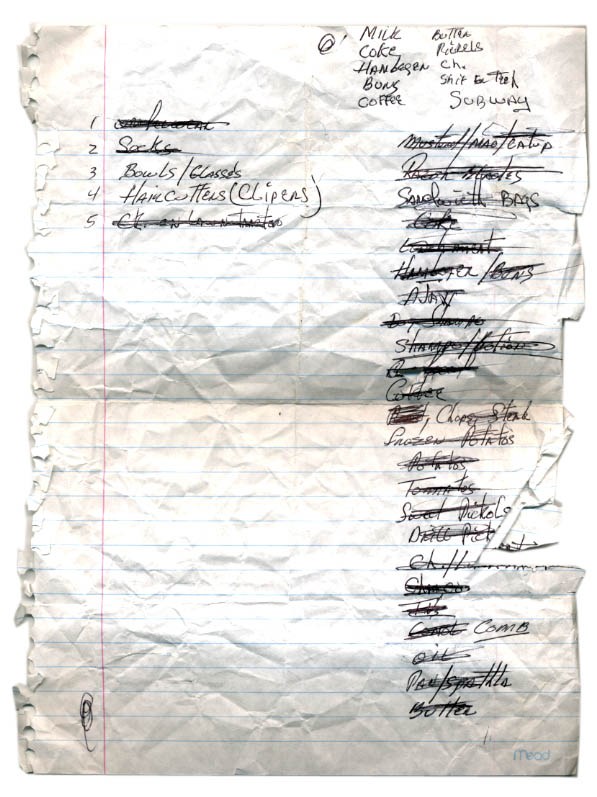 Milk Butter
Coke Pickels
Hambegen Ch.
Buns Shit En Tech
Coffee Subway
1
2 Socks
3 Bowls/Glasses
4 Haircutters (Clipers)
5 Ck. en
Mustard/Mao/Catup
Razor Blades
Sandwieth Bags
Coke
Hamberger/Buns
Ajax
Shampo/
Coffee
Chope Steak
Frozen Potatos
Potatos
Tomatos
Sweet Pickols
Dill Pick
Ch/
Comb
Oil
Pan/spathla
Butter
Mead